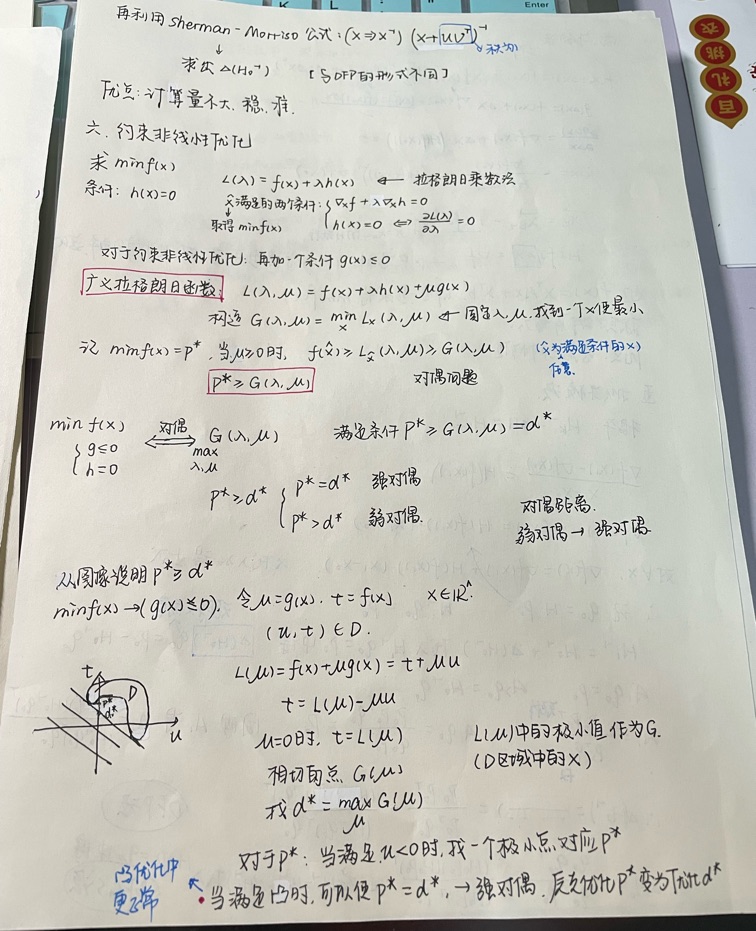 Enter
再利用 Sherman-Morriso 公式: (x⇒x⁻¹) (x+uvᵀ)⁻¹
↓ 秩为1
求出 Δ(H₀⁻¹) [与DFP的形式不同]
优点: 计算量不大、稳、准.
六、约束非线性优化
求 min f(x)
条件: h(x)=0
L(λ) = f(x)+λh(x) ← 拉格朗日乘数法
x̂满足的两个条件: { ∇ₓf+λ∇ₓh=0
取得 minf(x) h(x)=0 ⇔ ∂L(λ)/∂λ=0
对于约束非线性优化: 再加一个条件 g(x)≤0
广义拉格朗日函数: L(λ,μ)=f(x)+λh(x)+μg(x)
构造 G(λ,μ)=min Lₓ(λ,μ) ← 固定λ,μ,找到一个x使最小
x
记 minf(x)=p*, 当μ≥0时, f(x̂)≥Lx̂(λ,μ)≥G(λ,μ) (x̂为满足条件的x)
任意
p*≥G(λ,μ) 对偶问题
min f(x) 对偶 G(λ,μ) 满足条件 p*≥G(λ,μ)=d*
{ g≤0 ⟺ max
h=0 λ,μ
p*≥d* { p*=d* 强对偶
p*>d* 弱对偶.
对偶距离.
弱对偶→强对偶
从图像说明 p*≥d*
minf(x)→(g(x)≤0). 令μ=g(x). t=f(x) x∈ℝⁿ.
(u,t)∈D.
L(μ)=f(x)+μg(x)=t+μu
t=L(μ)-μu
t
D
p*
d*
u
μ=0时, t=L(μ)
L(μ)中的极小值作为G.
(D区域中的x)
相切的点 G(μ)
找 d*=max G(μ)
μ
对于p*: 当满足u<0时,找一个极小点对应p*
凸优化中
更正常
当满足凸时,可以使p*=d*,→强对偶. 后克优化p*变为优化d*
衣
挑
礼
百